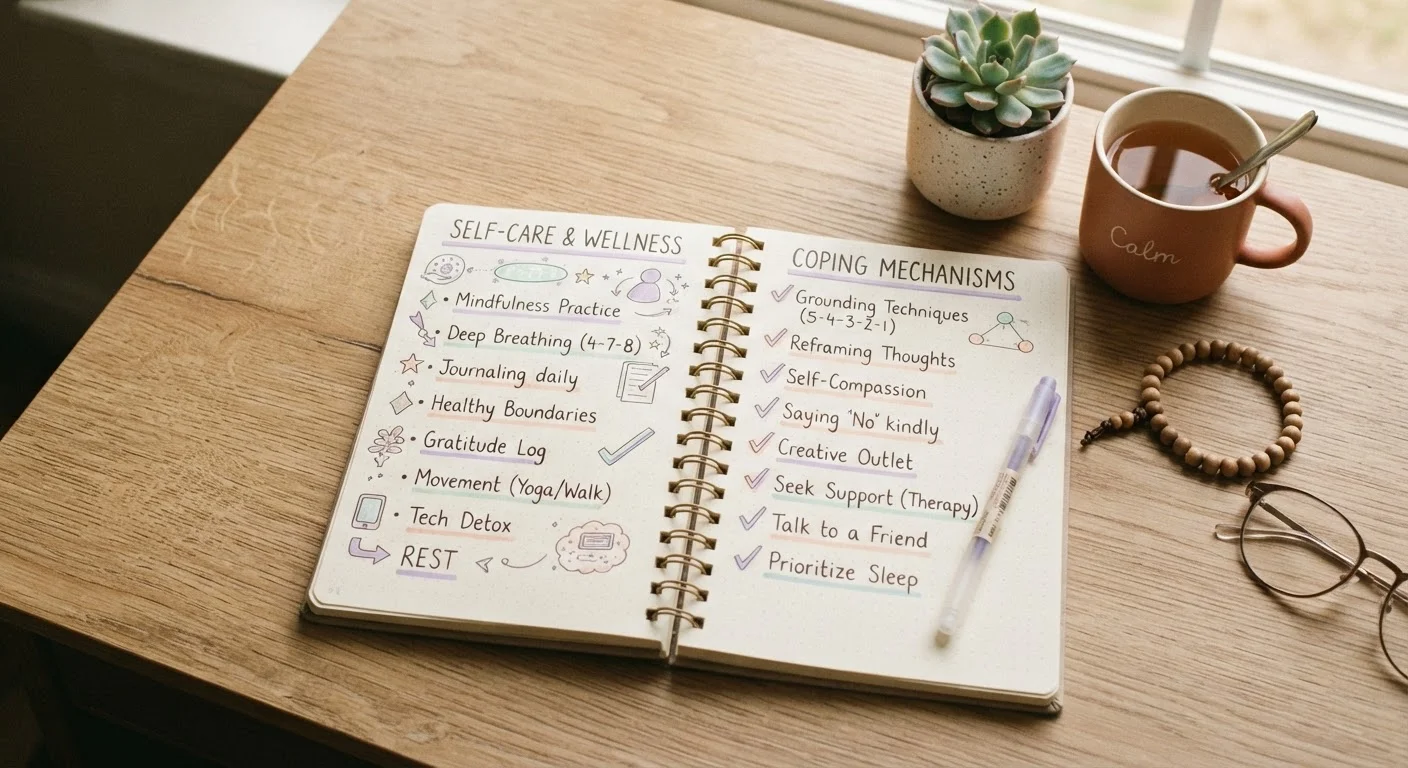 SELF-CARE & WELLNESS
• Mindfulness Practice
• Deep Breathing (4-7-8)
• Journaling daily
• Healthy Boundaries
• Gratitude Log
• Movement (Yoga/Walk)
• Tech Detox
REST
COPING MECHANISMS
Grounding Techniques
(5-4-3-2-1)
Reframing Thoughts
Self-Compassion
Saying "No" kindly
Creative Outlet
Seek Support (Therapy)
Talk to a Friend
Prioritize Sleep
Calm